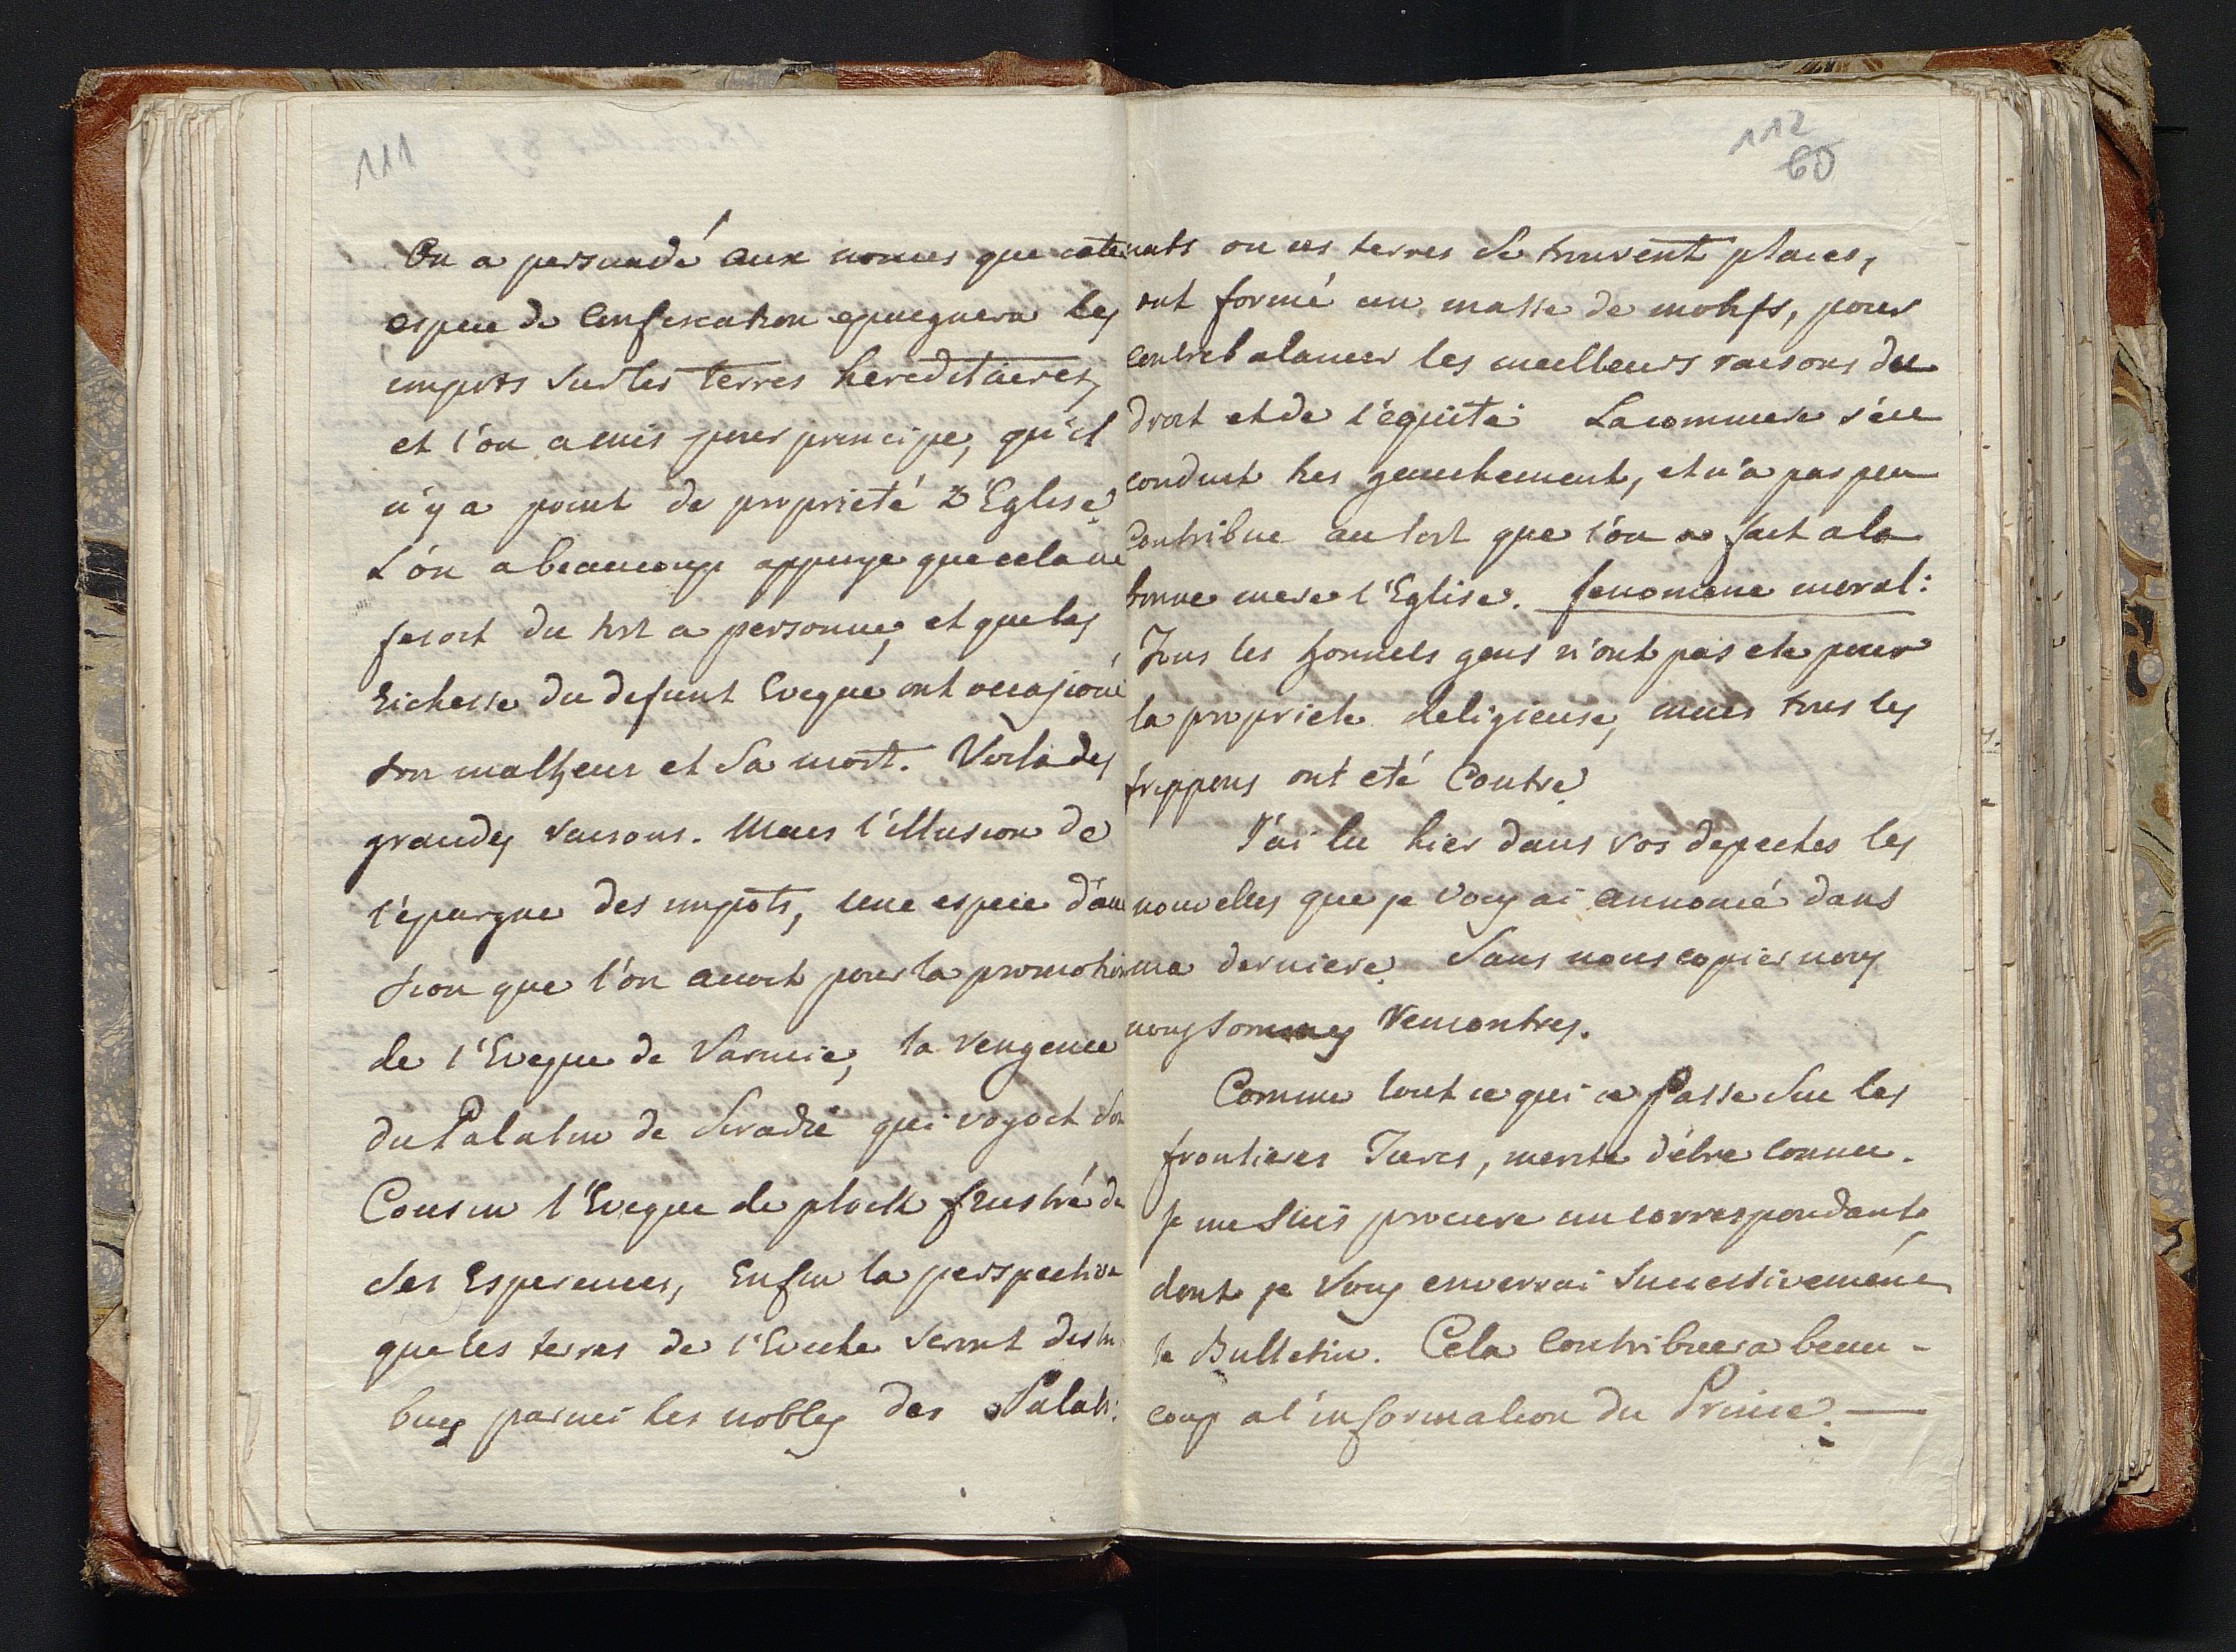 111
On a persuadé aux nonces que cette
espece de Confiscation epargnera les
impots sur les terres hereditaires,
et l'on a mis pour principe, qu'il
n'y a point de proprieté d'Eglise.
L'on a beaucoup appuye que cela ne
fesoit du tort a personne, et que les
Richesse du defunt Eveque ont occasioné
son malheur et sa mort. Voila des
grandes raisons. Mais l'illusion de
l'epargne des impots, une espece d'au
sion que l'on avoit pour la promotion
de l'Eveque de Varmie, la vengence
du Palatin de Siradie qui voyoit son
Cousin l'Eveque de plock frustré de
ses Esperences, Enfin la perspective
que les terres de l'Eveche seront distri
bues parmi les nobles des Palati:
112
60
nats ou ces terres se trouvent places,
ont formé un masse de motifs, pour
contrebalancer les meilleurs raisons du
droit et de l'equité. La commere s'en
conduit tres gauchement, et n'a pas peu
Contribue au tort que l'on a fait a la
bonne mere l'Eglise. fenomene moral:
Tous les honnets gens n'ont pas ete pour
la propriete religieuse, mais tous les
frippons ont eté Contre.
J'ai lu hier dans vos depeches les
nouvelles que je vous ai annoncé dans
ma derniere. Sans nous copier nous
nous sommes Rencontres.
Comme tout ce qui ce passe sur les
frontieres Turcs, merite d'être connu.
Je me suis procure un correspondant,
dont je vous enverrai successivement
le Bulletin. Cela contribuera beau-
coup a l'information du Prince. —